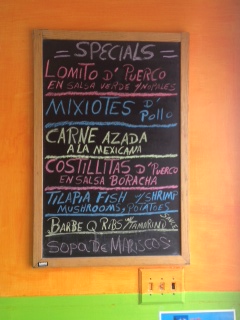 = SPECIALS =
LOMITO D' PUERCO
EN SALSA VERDE Y NOPALES
MIXIOTES D'
Pollo
CARNE AZADA
A LA MEXICANA
COSTILLITAS D' PUERCO
EN SALSA BORACHA
TILAPIA FISH Y/SHRIMP
MUSHROOMS, POTATOES
BARBE Q RIBS W/TAMARIND SAUCE
SOPA DE MARISCOS